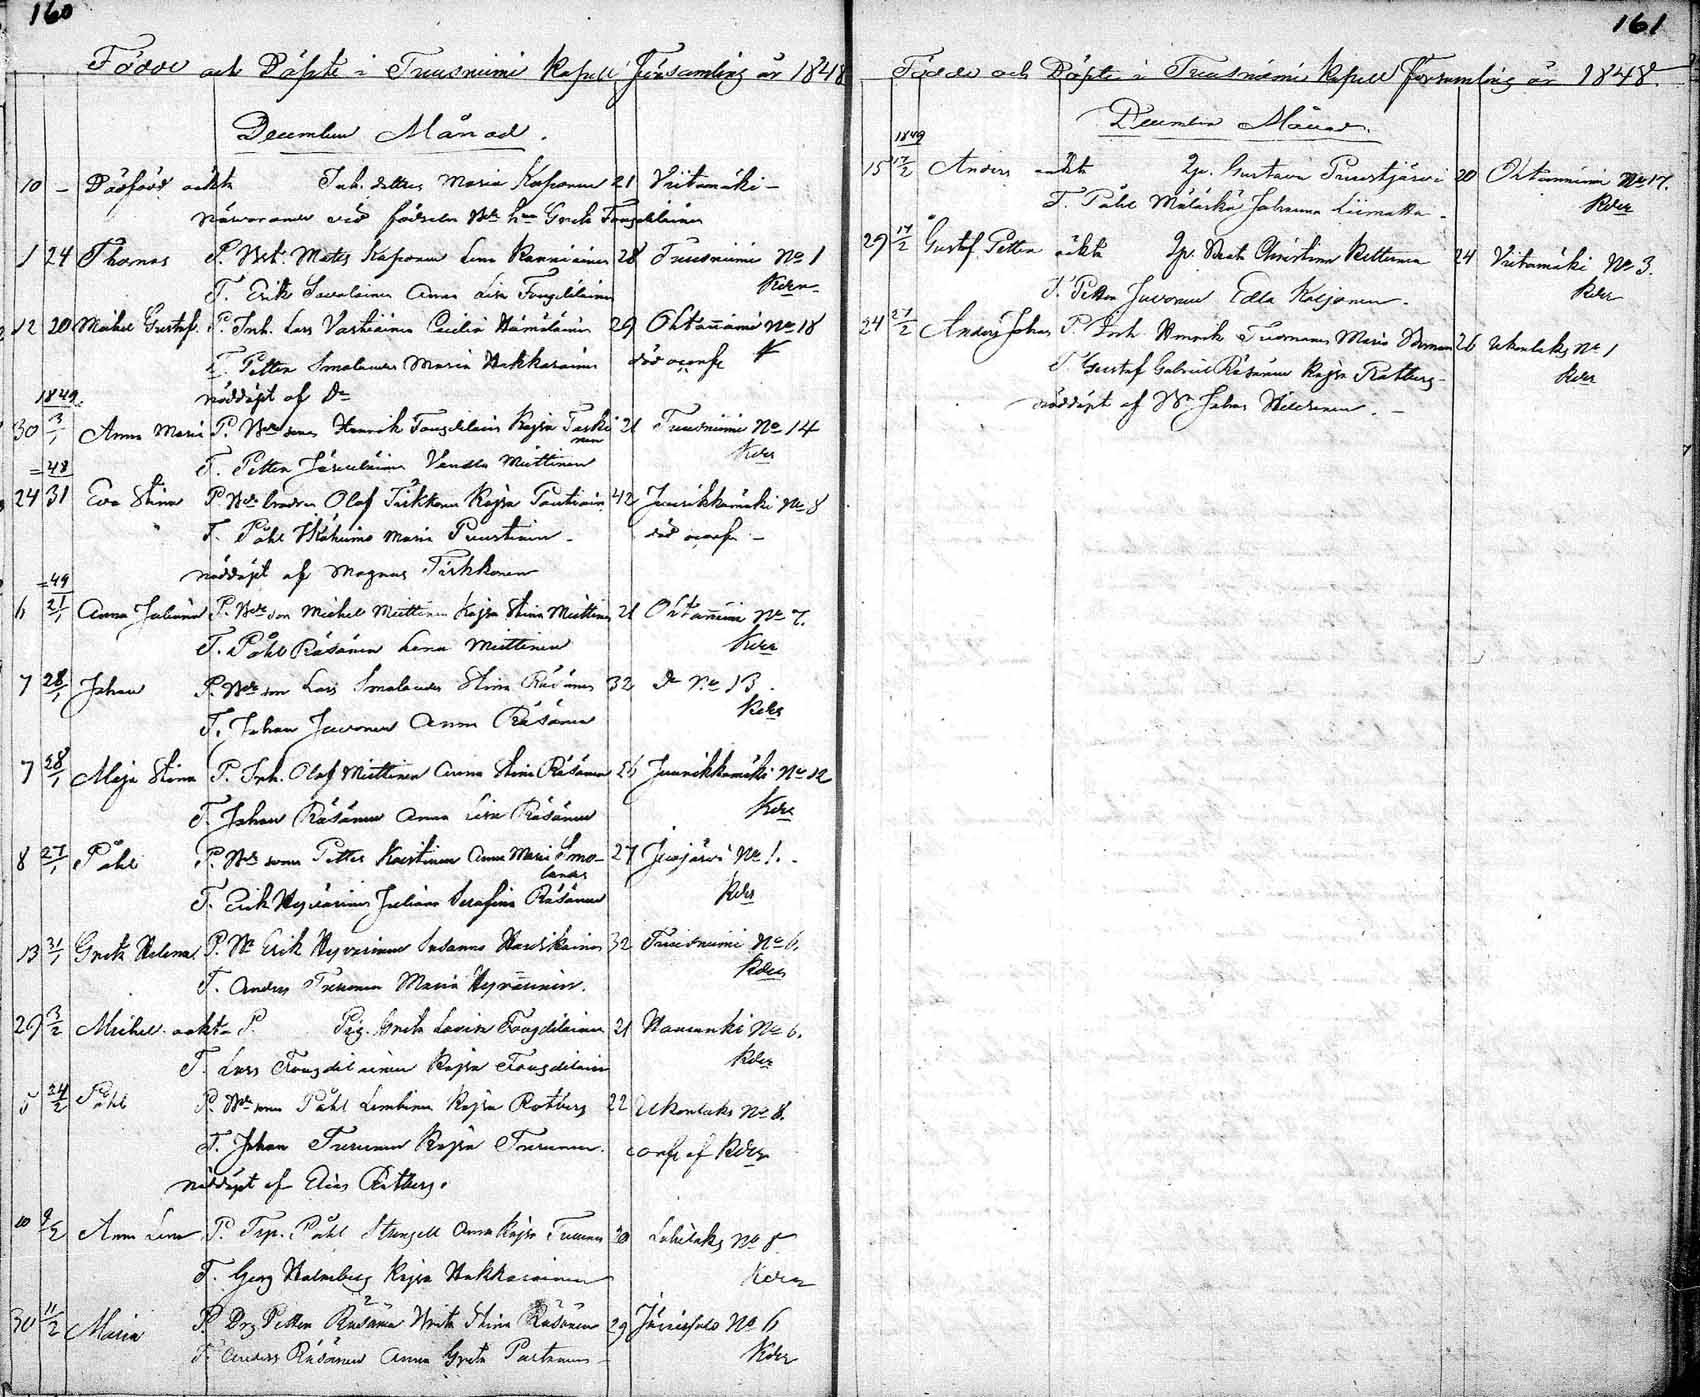 160
Födde och Döpte i Tuusniemi Kapell församling år 1848
December Månad.
10 – Dödfödd oäkta Inh. dottren Maria Kosponen 21 Viitamäki –
närvarande vid födseln Greta Tougdilainen
1 24 Thomas P. Mats Kosponen Lena Ranniainen 28 Tuusniemi No 1
T. Erik Savolainen Anna Lisa Tougdilainen Kder
12 20 Michel Gustaf P. Inh. Lars Vastiainen Cecilia Hämäläinen 29 Ohtaniemi No 18
T. Petter Smolander Maria Hakkarainen död
nöddöpt af Do
1849.
30 3/1 Anna Maria P. Henrik Tougdilain Kajsa Taski 21 Tuusniemi No 14
nen
T. Petter Jäskeläinen Vendla Miettinen Kder
=48
24 31 Eva Stina P. Olof Tirkkonen Kajsa Pautiain 42 Juurikkamäki No 8
T. Påhl Maria Puustinen – död
nöddöpt af Magnus Tirkkonen
=49
6 21/1 Anna Juliana P. son Michel Miettinen Kajsa Stina Miettinen 21 Ohtaniemi No 7.
T. Påhl Räsänen Lena Miettinen Kder
7 28/1 Johan P. son Lars Smolander Stina Räsänen 32 Do No 13.
T. Johan Juvonen Anna Räsänen Kder
7 28/1 Maja Stina P. Inh. Olof Miettinen Anna Stina Räsänen 26 Juurikkamäki No 12
T. Johan Räsänen Anna Lisa Räsänen Kder
8 27/1 Påhl P. Petter Koistinen Anna Maria Smo- 27 Juojärvi No 1.
lander
T. Erik Hyvärinen Juliana Serafina Räsänen Kder
13 31/1 Greta Helena P. Erik Hyvärinen Susanna Hauskainen 32 Tuusniemi No 6.
T. Anders Turunen Maria Hyvärinen. Kder
29 3/2 Michel oäkta P. Pig. Greta Lovisa Tougdilainen 21 Hanunki No 6.
T. Lars Tougdilainen Kajsa Tougdilain Kder
5 24/2 Påhl P. Påhl Limbinen Kajsa Rotberg 22 Ukonlaks No 8.
T. Johan Turunen Kajsa Turunen. conf af Kder
nöddöpt af Elias Rotberg.
10 9/2 Anna Lena P. Trp. Påhl Stengell Anna Kajsa Turunen 30 Lahilaks No 5
T. Georg Holmberg Kajsa Hakkarainen Kder
30 11/2 Maria P. Drg Petter Räsänen Brita Stina Räsänen 29 No 6
T. Anders Räsänen Anna Greta Partanen – Kder
161
Födde och Döpte i Tuusniemi Kapell församling år 1848.
December Månad.
1849
15 17/2 Anders oäkta Qp. Gustava Puustjärvi 20 Ohtaniemi No 17.
T. Påhl Mälaskä Johanna Liimatta – Kder
29 17/2 Gustaf Petter oäkta Qp. Beata Christina Kettunen 24 Viitamäki No 3.
T. Petter Juvonen Edla Korjonen – Kder
24 27/2 Anders Johan P. Inh Henrik Turunen Maria 26 Ukonlaks No 1
T. Gustaf Gabriel Räsänen Kajsa Rotberg – Kder
nöddöpt af Johan –